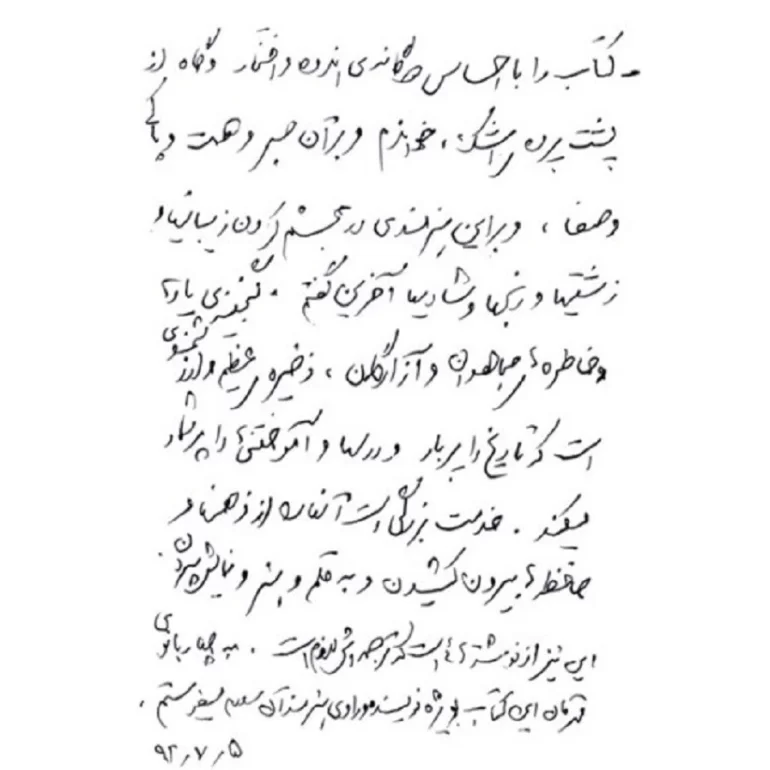 کتاب را با احساس دوگانه‌ی اندوه و افتخار و گاه از
پشت پرده‌ی اشک، خواندم و بر آن صبر و همت و پاکی
و صفا، و بر این هنرمندی در مجسم کردن زیبائیها و
زشتیها و رنجها و شادیها آفرین گفتم. گنجینه‌ی یادها
و خاطره‌های مجاهدان و آزادگان، ذخیره‌ی عظیم و ارزشمندی
است که تاریخ را پربار و درسها و آموختنی‌ها را پرشمار
میکند. خدمت بزرگی است آنها را از ذهنها و
حافظه‌ها بیرون کشیدن و به قلم و هنر و نمایش سپردن.
این نیز از نوشته‌هائی است که ترجمه‌اش لازم است. به چهار بانوی
قهرمان این کتاب بویژه نویسنده و راوی هنرمند آن سلام میفرستم.
۹۲/۷/۵